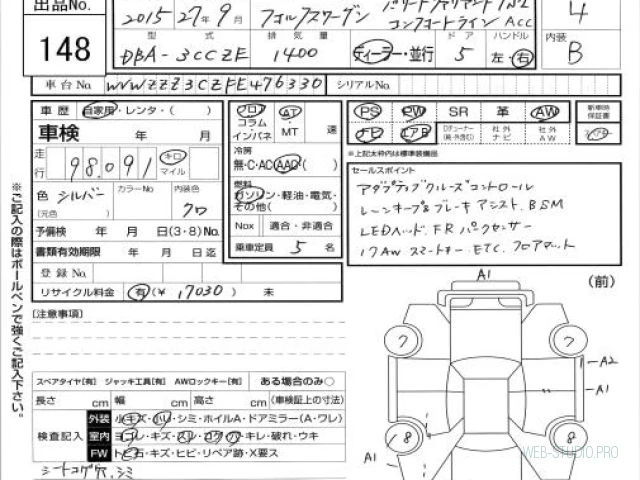 出品No.
148
2015 27年 9月 フォルクスワーゲン
コンフォートライン Acc
4
型 式 排 気 量 ド ア ハンドル 内装
DBA-3CCZF 1400 ディーラー・並行 5 左・右 B
車台No. WVWZZZ3CZFE476330 シリアルNo.
車歴 自家用・レンタ・( )
車検 年 月
走行 98,091 キロ マイル
色 シルバー カラーNo. 内装色 クロ
(元色 )
予備検 年 月 日(3・8)No.
書類有効期限 年 月 日迄
登録No.
リサイクル料金 有(¥ 17030 ) 未
フロア コラム インパネ AT MT 速
冷房
無・C・AC・AAC( )
燃料
ガソリン・軽油・電気・
その他( )
Nox 適合・非適合
乗車定員 5 名
PS PW SR 革 AW
ナビ エアB 社外ナビ 社外AW
新車時保証書
※上記太枠内は標準装備品
セールスポイント
アダプティブクルーズコントロール
レーンキープ&ブレーキアシスト BSM
LEDヘッド FRパークセンサー
17AW スマートキー ETC フロアマット
※ご記入の際はボールペンで強くご記入下さい。
[注意事項]
スペアタイヤ[有] ジャッキ工具[有] AWロックキー[有] ある場合のみ○
長さ cm 幅 cm 高さ cm (車検証上の寸法)
検査記入
外装 小キズ・小凹・シミ・ホイルA・ドアミラー(A・ワレ)
室内 ヨゴレ・キズ・スレ・コゲ・穴・キレ・破れ・ウキ
FW トビ石・キズ・ヒビ・リペア跡・X要ス
シートコゲ穴、シミ
A1
(前)
7 7
A2
A1
8 8
A1
WEB-STUDIO.PRO